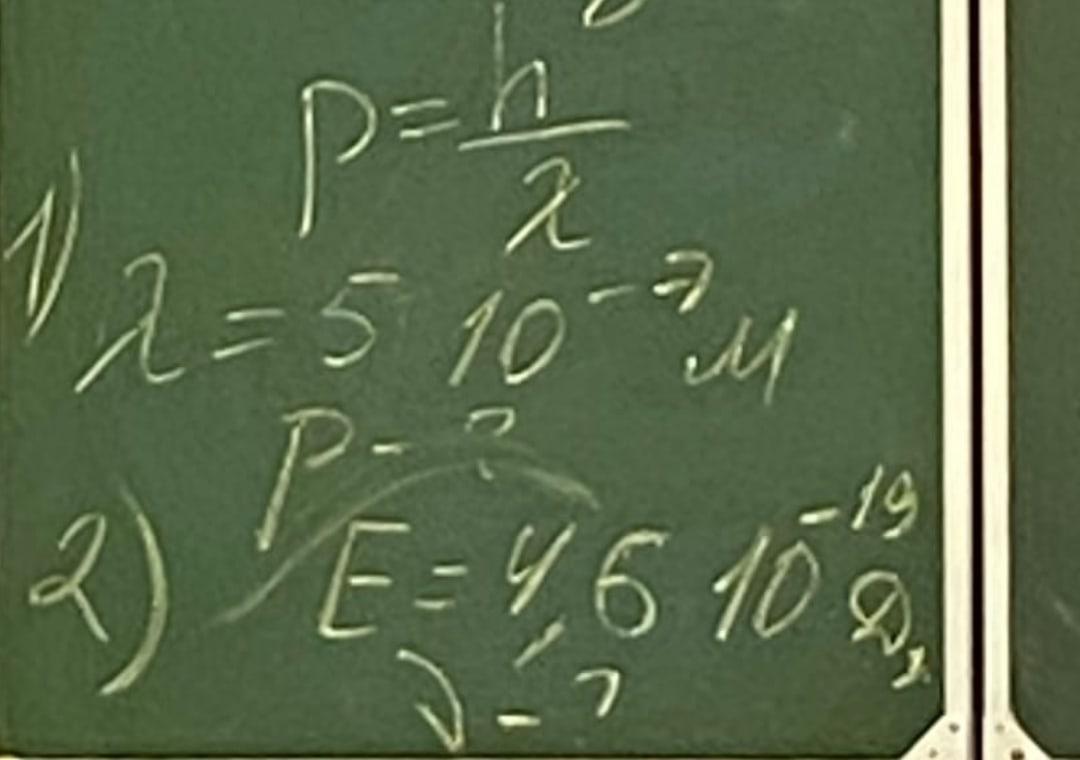 p = h/λ
1) λ = 5 10⁻⁷ м
p - ?
2) E = 4,6 10⁻¹⁹ Дж
ν - ?